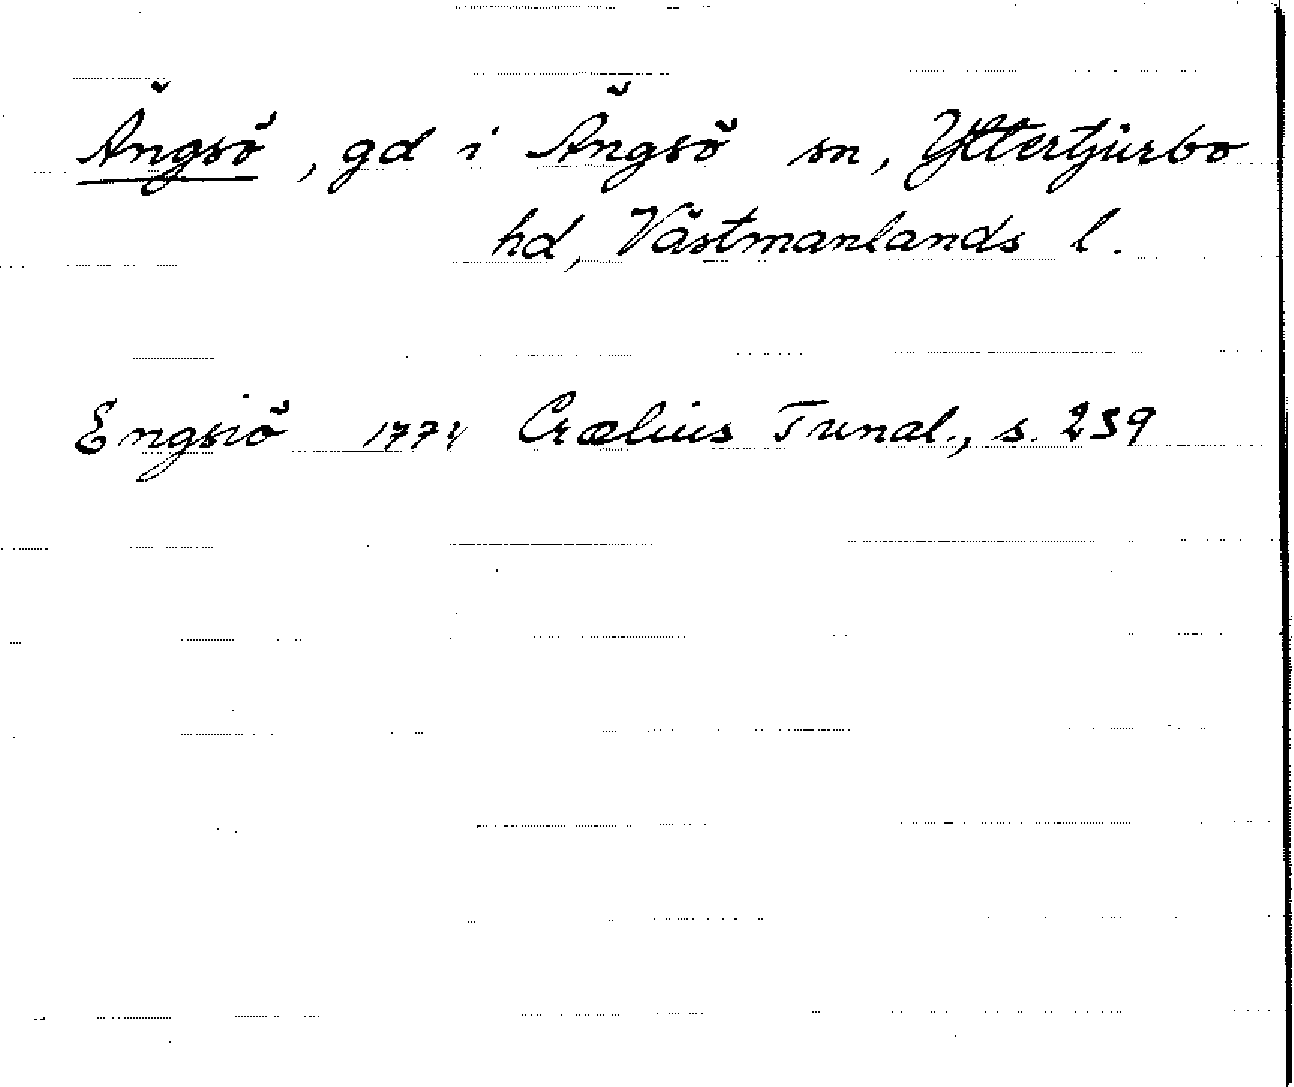 Ängsö, gd i Ängsö sn, Yttertjurbo
hd, Västmanlands l.
Engsiö 1774 Crælius Tunal., s. 239